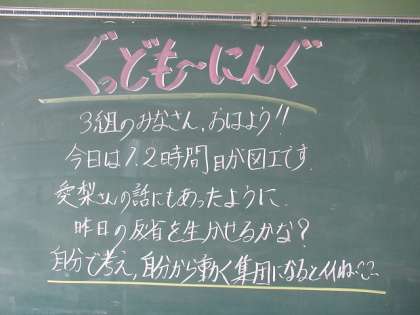 ぐっども~にんぐ
3組のみなさん、おはよう!!
今日は1.2時間目が図工です.
愛梨さんの話にもあったように.
昨日の反省を生かせるかな?
自分で考え,自分から動く集団になるとイイね。